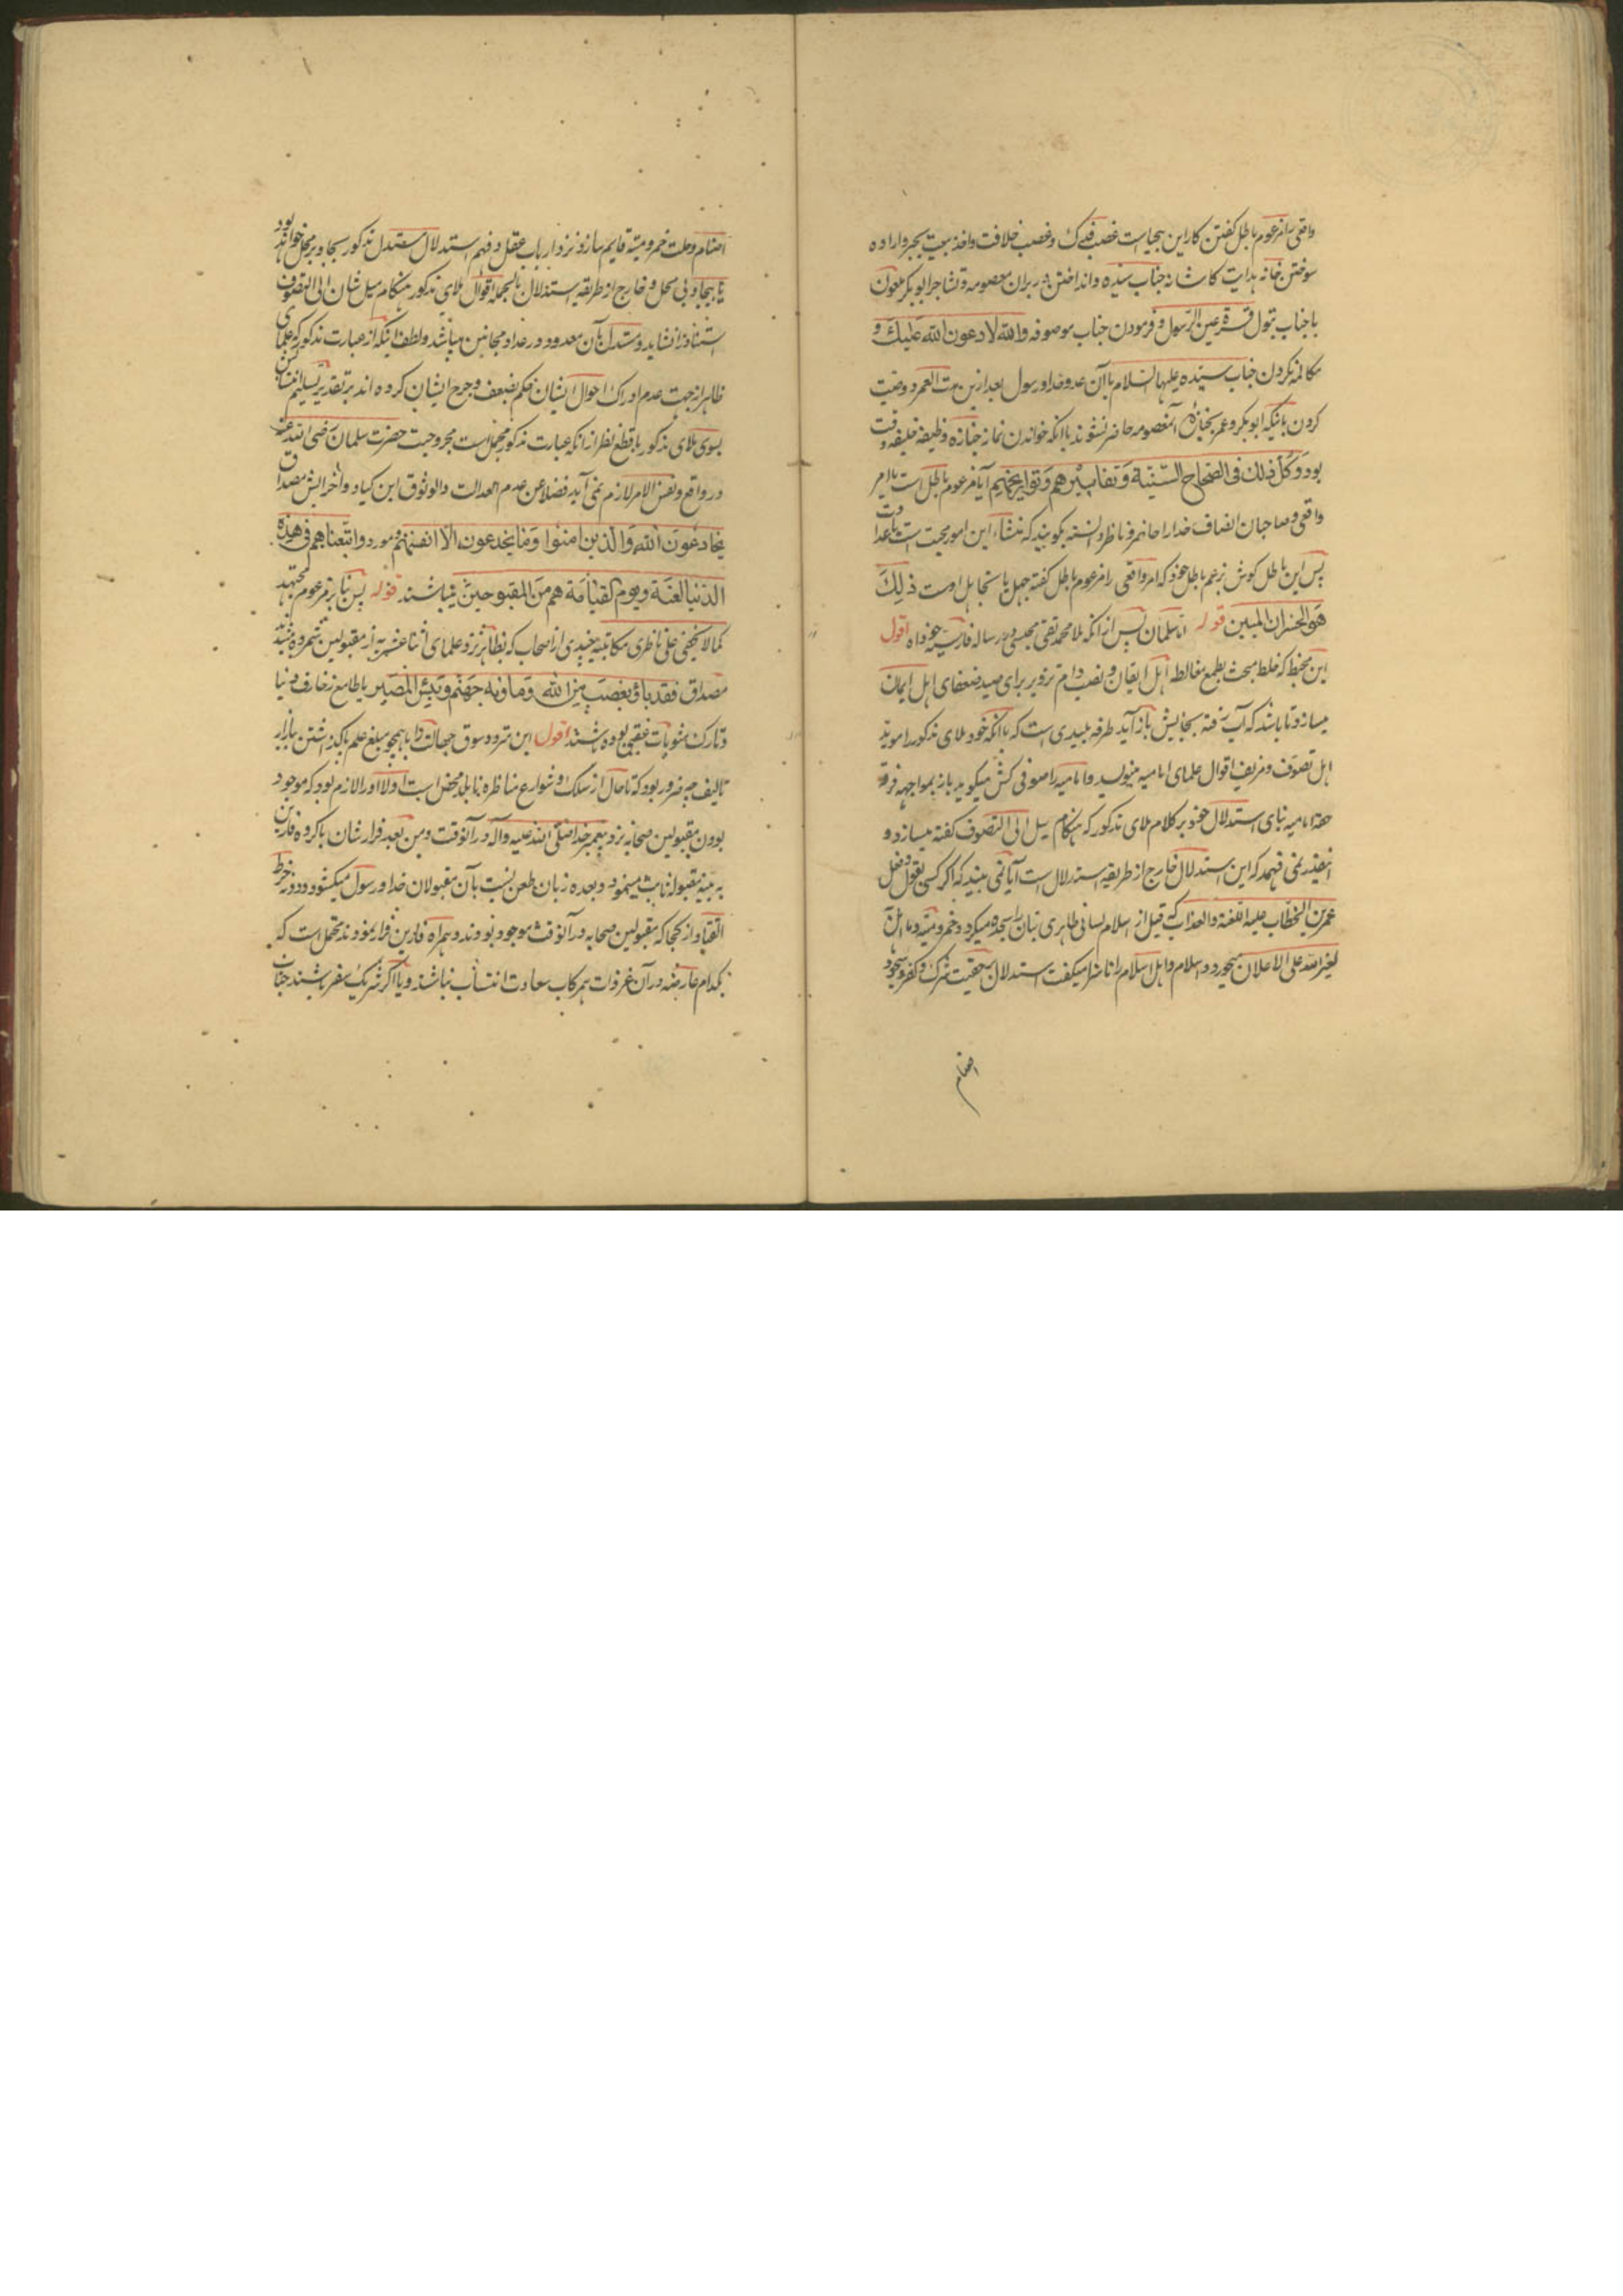 واقعی را مزعوم باطل گفتن کار این بیجیاست غصب فدک و غصب خلافت و اخذ بیعت بجبر و اراده
سوختن خانه هدایت کاشانه جناب سیده و انداختن در بران معصومه و تشاجر ابوبکر ملعون
با جناب بتول قرة عین الرسول و فرمودن جناب موصوفه والله لادعون الله علیک و
مکالمه نکردن جناب سیده علیها السلام با آن عدو خدا و رسول بعد ازین مدت العمر و وصیت
کردن باینکه ابوبکر و عمر بجنازه آنمعصومه حاضر نشوند با آنکه خواندن نماز جنازه وظیفه خلیفه وقت
بود وکل ذلک فی الصحاح السنیة وتفاسیرهم وتواریخهم آیا مزعوم باطل است یا امر
واقعی و صاحبان انصاف خدا را حاضر و ناظر دانسته بگویند که منشاء این امور محبت است یا عداوت
پس این باطل کوش بزعم باطل خود که امر واقعی را مزعوم باطل گفته جهل یا تجاهل اوست ذلک
هو الخسران المبین قوله اما سلمان پس از آنکه ملا محمد تقی مجلسی در رساله فارسیه خود اه اقول
این مخبط که خلط مبحث بطمع مغالطه اهل ایقان و نصب دام تزویر برای صید ضعفای اهل ایمان
میسازد تا باشد که آب رفته بجایش باز آید طرفه بلیدی است که با آنکه خود ملای مذکور را موید
اهل تصوف و مزیف اقوال علمای امامیه مینویسد و امامیه را صوفی کش میگوید باز بمواجهه فرقه
حقه امامیه بنای استدلال خود بر کلام ملای مذکور که هنگام میل الی التصوف گفته میسازد و
اینقدر نمی فهمد که این استدلال خارج از طریقه استدلال است آیا نمی بیند که اگر کسی بقول و فعل
عمر بن الخطاب علیه اللعنة والعذاب که قبل از اسلام لسانی ظاهری بتان را سجده میکرد و خمر و میته و ما اهل
لغیر الله علی الاعلان میخورد و اسلام و اهل اسلام را ناسزا میگفت استدلال بحقیت شرک و کفر و سجود
اصنام
اصنام و حلت خمر و میته قایم سازد نزد ارباب عقل و فهم استدلال مستدل مذکور بجا و برمحل خواهد بود
یا بیجا و بی محل و خارج از طریقه استدلال بالجمله اقوال ملای مذکور هنگام میل شان الی التصوف
استناد را نشاید و مستدل بآن معدود در عداد مجانین میباشد و لطف اینکه از عبارت مذکور که علمای
ظاهر از جهت عدم ادراک احوال ایشان حکم بضعف و جرح ایشان کرده اند بر تقدیر تسلیم انتساب
بسوی ملای مذکور با قطع نظر از آنکه عبارت مذکور مجمل است مجروحیت حضرت سلمان رضی الله عنه
در واقع و نفس الامر لازم نمی آید فضلا عن عدم العدالت والوثوق این کیاد و آخرایش مصداق
یخادعون الله والذین امنوا وما یخدعون الا انفسهم و مورد واتبعناهم فی هذه
الدنیا لعنة ویوم القیامة هم من المقبوحین میباشند قوله پس بنا بر مزعوم مجتهد
کما لا یخفی علی ناظری مکاتبیه یعنی از اصحاب که بظاهر نزد علمای اثنا عشریه از مقبولین شمرده شدند
مصداق فقد باؤ بغضب من الله وماونه جهنم وبئس المصیر یا طامع زخارف دنیا
و تارک مثوبات عقبی بوده باشند اقول این متردد سوق جهالت را با همچو مبلغ علم پا گذاشتن ببازار
تالیف چه ضرور بود که تا حال از سکک و شوارع مناظره نابلد محض است اولا او را لازم بود که موجود
بودن مقبولین صحابه نزد پیغمبر خدا صلی الله علیه وآله در آنوقت و من بعد فرار شان با گروه فارین
به بینه مقبوله ثابت مینمود و بعده زبان طعن نسبت بآن مقبولان خدا و رسول میگشود و دونه خرط
القتاد از کجا که مقبولین صحابه در آنوقت موجود بودند و همراه فارین فرار نمودند محتمل است که
بکدام عارضه در آن غزوات همرکاب سعادت انتساب نباشند و یا اگر شریک سفر باشند جناب